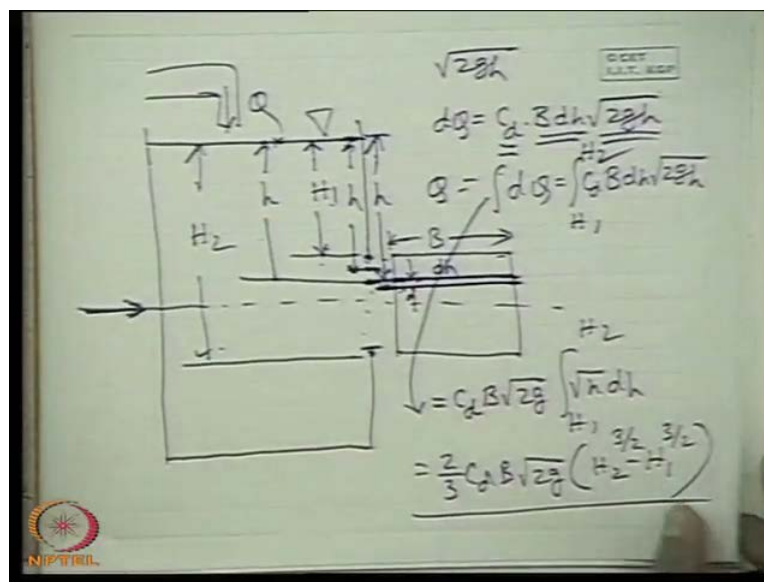 √2gh
C CET
I.I.T. KGP
Q
dQ = Cd · B dh √2gh
H2 h H1 h h
Q = ∫ dQ = ∫_{H1}^{H2} Cd B dh √2gh
B
dh
= Cd B √2g ∫_{H1}^{H2} √h dh
= 2/3 Cd B √2g (H2^{3/2} - H1^{3/2})
NPTEL